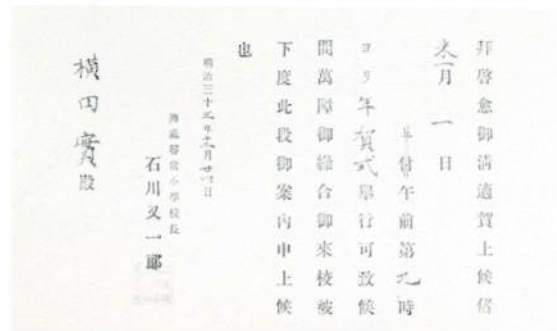 拜啓愈御淸適賀上候偖
來一月一日
午前第九時
ヨリ年賀式擧行可致候
間萬障御繰合御來校被
下度此段御案內申上候
也
明治三十五年十二月廿八日
尋常小學校長
石川又一郞
橫田實殿